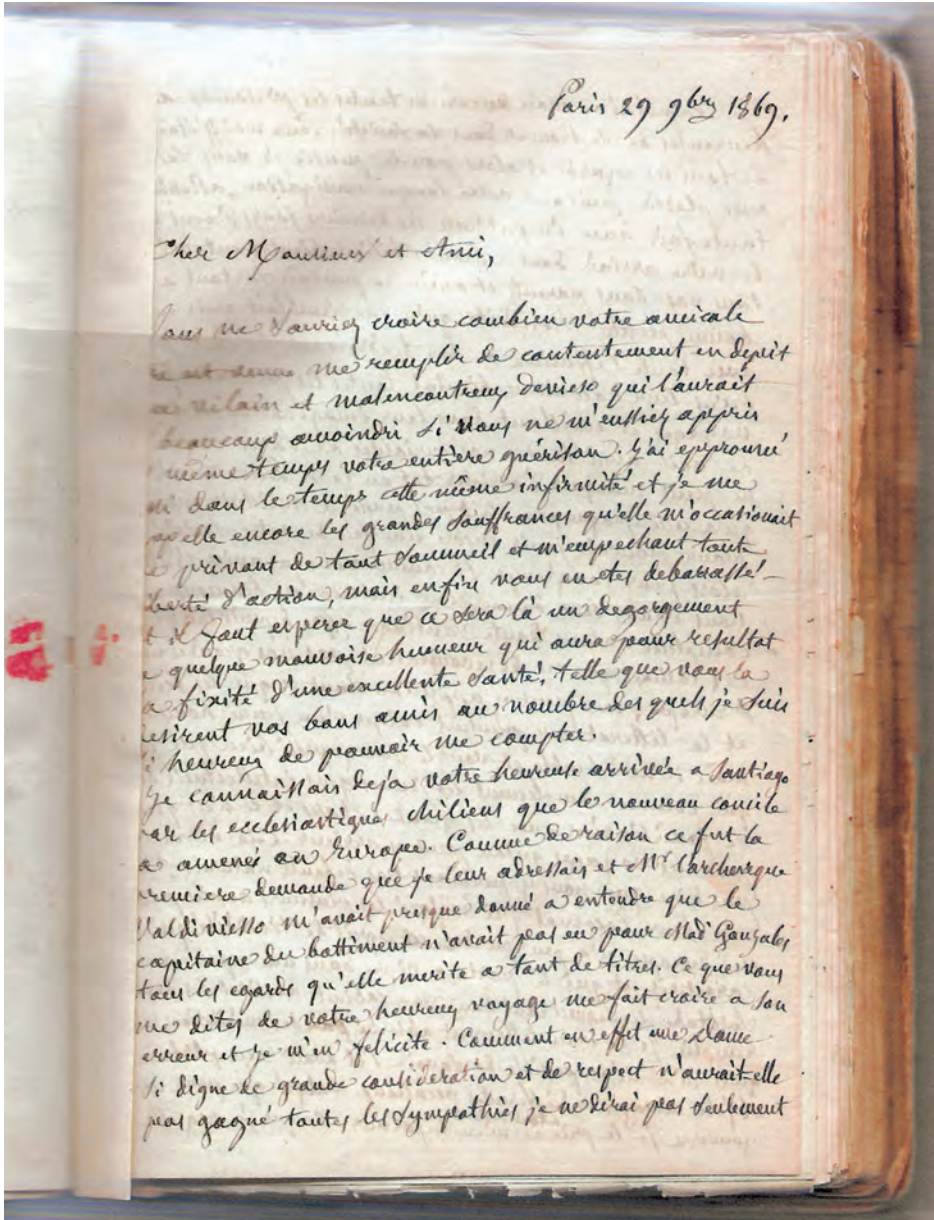 Paris 29 9bre 1869.
Cher Monsieur et Ami,
Vous ne sauriez croire combien votre amicale
me remplir de contentement en depit
vilain et malencontreux qui l'aurait
beaucoup amoindri si vous ne m'eussiez appris
même temps votre entière guérison. J'ai epprouvé
dans le temps cette même infirmité et je me
pelle encore les grandes souffrances qu'elle m'occasionait
privant de tout sommeil et m'empechant toute
berté d'action, mais enfin vous en etes debarassé
t il faut esperer que ce sera là un degorgement
e quelque mauvaise humeur qui aura pour resultat
a fixité d'une excellente santé, telle que vous la
esirent vos bons amis au nombre des quels je suis
i heureux de pouvoir me compter.
Je connaissais deja votre heureuse arrivée a Santiago
ar les ecclesiastiques chiliens que le nouveau concile
a amenés en Europe. Comme de raison ce fut la
remiere demande que je leur adressais et Mr l'archeveque
Valdiviesso m'avait presque donné a entendre que le
capitaine du battiment n'avait pas eu pour Mad Gonzales
tous les egards qu'elle merite a tant de titres. Ce que vous
me dites de votre heureux voyage me fait croire a son
erreur et je m'en felicite. Comment en effet une Dame
si digne de grande consideration et de respect n'aurait-elle
pas gagné toutes les sympathies je ne dirai pas seulement